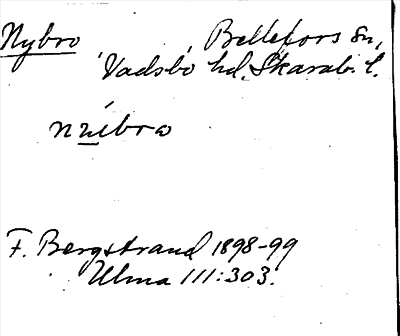 Nybro Bellefors sn,
Vadsbo hd. Skarab. l.
nú̲ibro
F. Bergstrand 1898-99
Ulma 111:303.